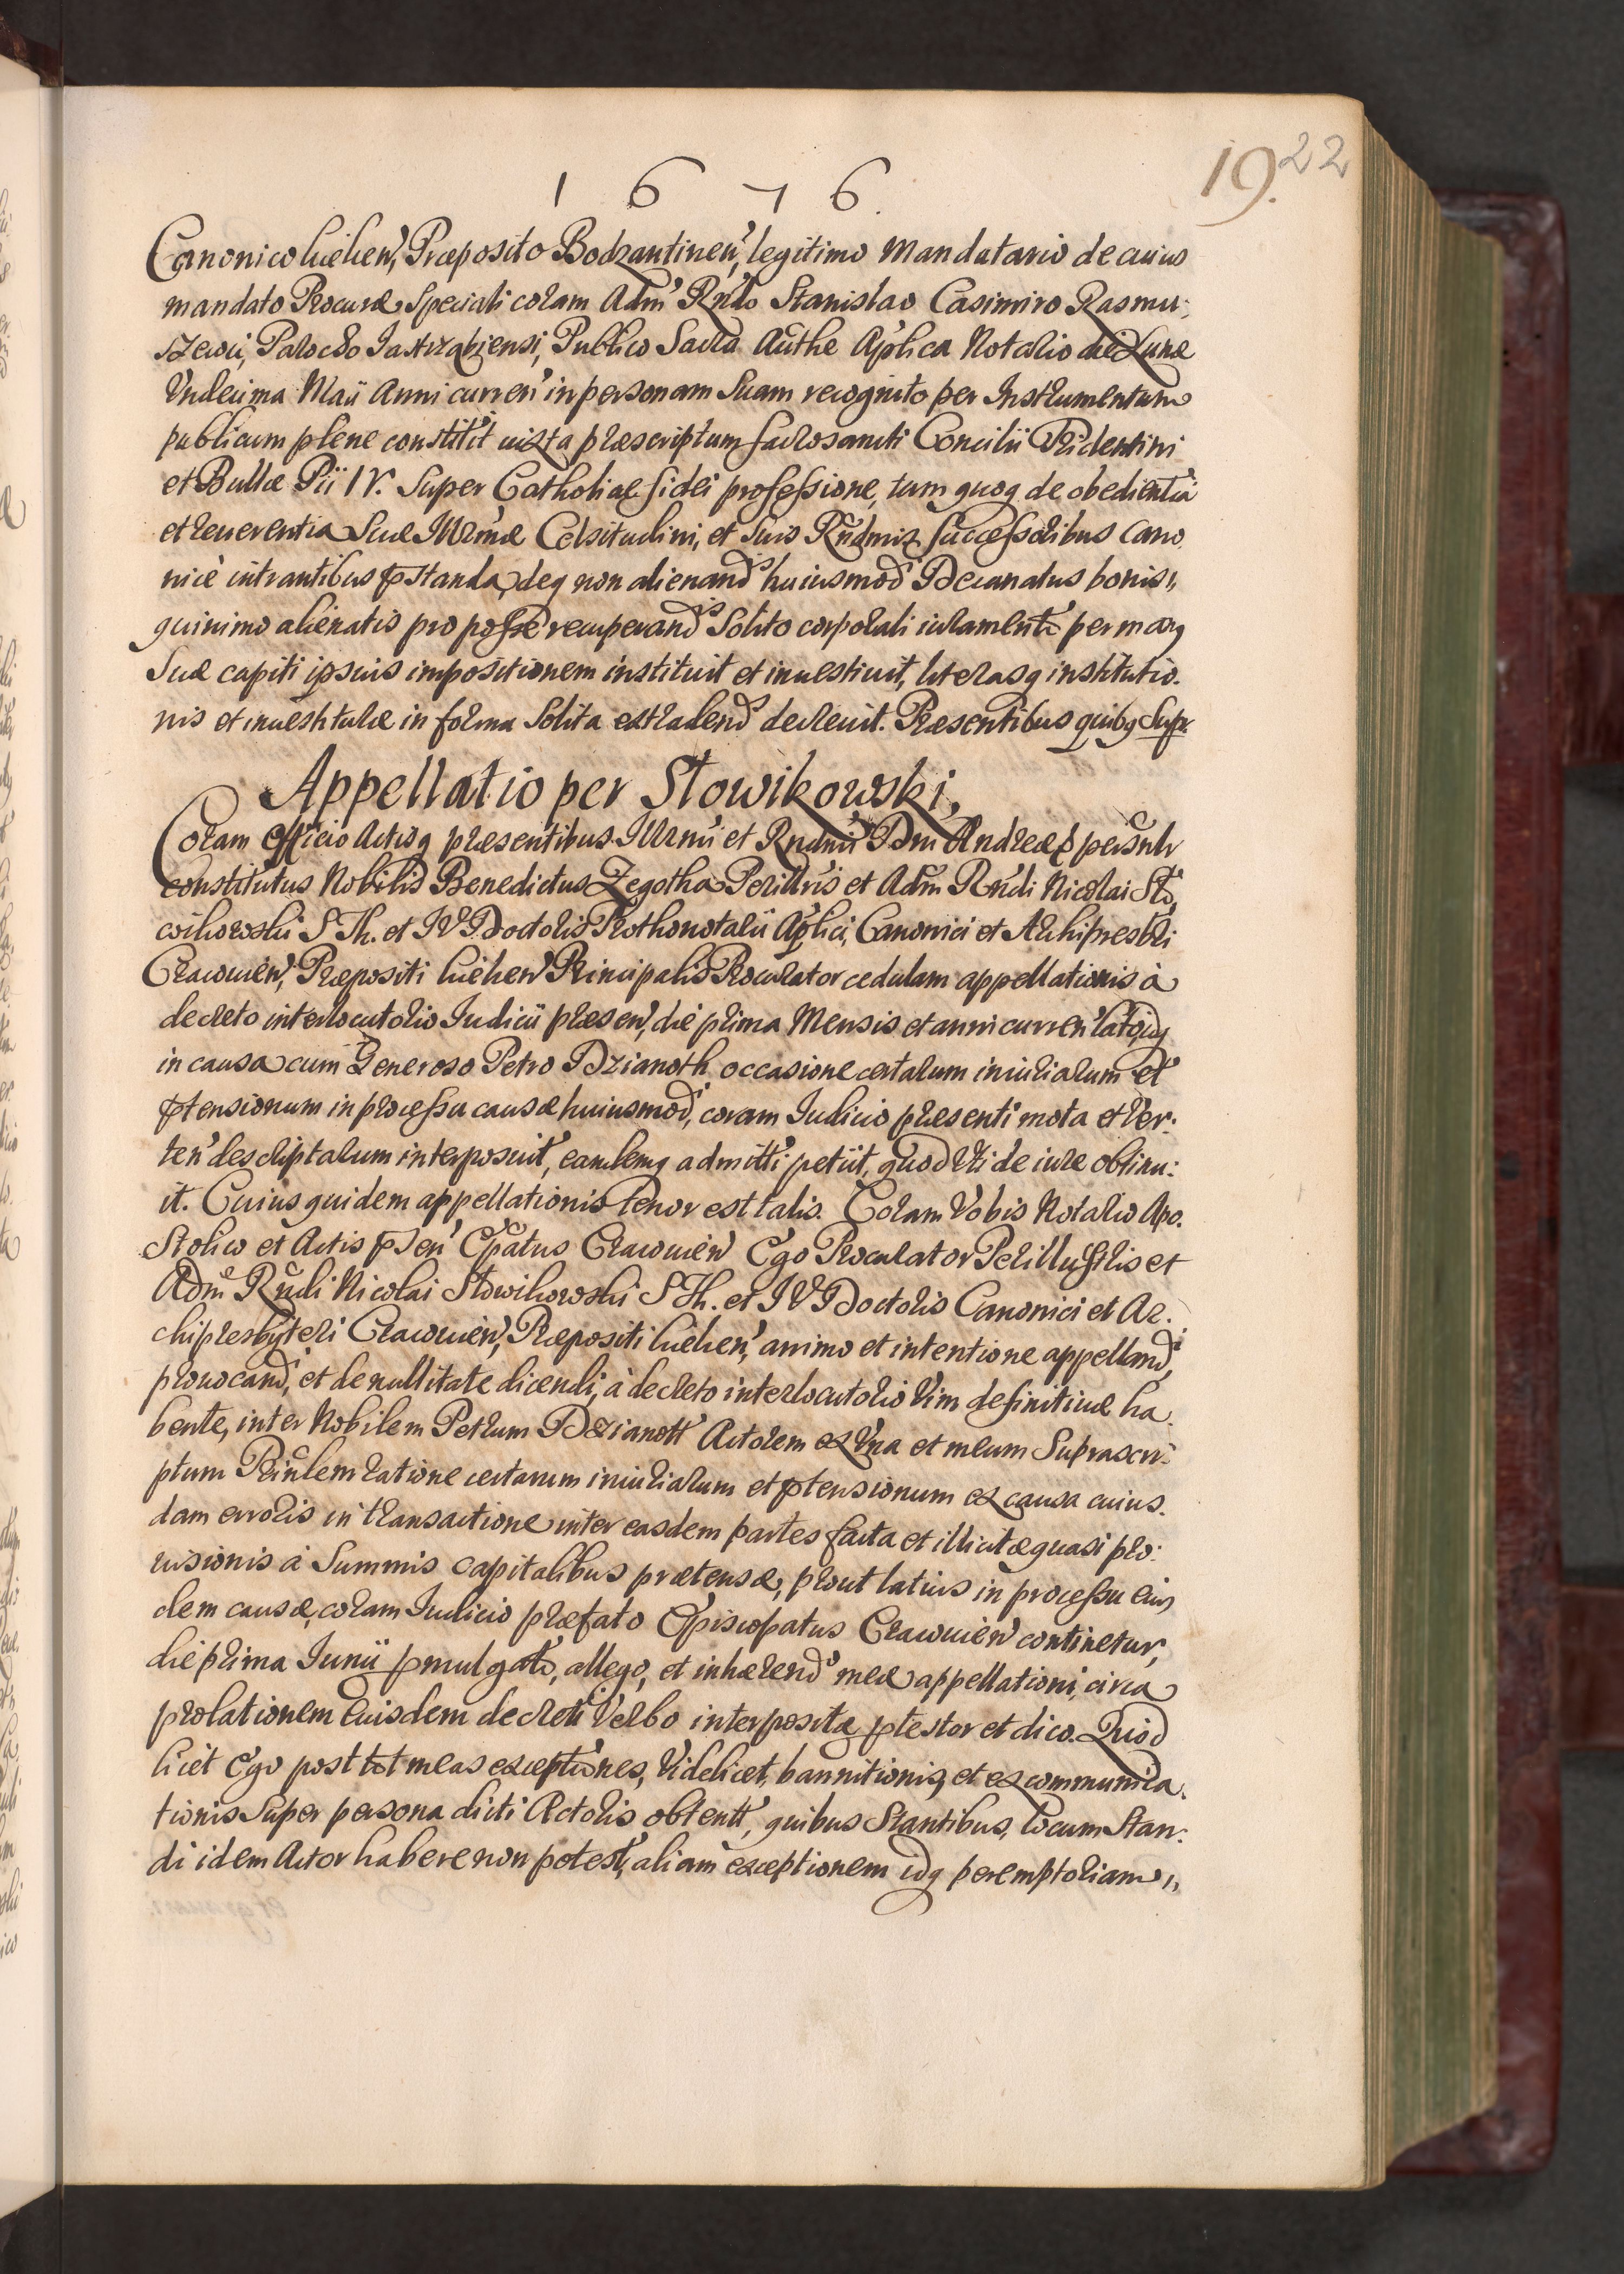 1 6 7 6.
19. 22
Canonico Kielcen, Præposito Bodzantinen, legitimo Mandatario de cuius
mandato Procuræ Speciali coram Adm Rndo Stanislao Casimiro Rasmu:
szewic, Parocho Jastrząbiensi, Publico Sacra Authe Aplica Notario die Lunæ
Vndecima Maii Anni curren in personam Suam recognito per Instrumentum
publicum plene constitit iuxta præscriptum Sacrosancti Concilii Tridentini
et Bullæ Pii IV. Super Catholicæ fidei professione, tum quoq de obedientia
et reuerentia Suæ Illrmæ Celsitudini, et Suis Rndmis Successoribus Cano
nice intrantibus pstanda, deq non alienand huiusmod Decanatus bonis,,
quinimo alienatis pro posse recuperand Solito corporali iuramento per manq
Suæ capiti ipsius impositionem instituit et inuestiuit, literasq institutio.
nis et inuestituræ in forma Solita extradend decreuit. Præsentibus quibq Supr.
Appellatio per Słowikowski,
Coram officio Actisq præsentibus Illrmi et Rndmi Dni Andreæ persnlr
constitutus Nobilis Benedictus Zegotha Perillris et Adm Rndi Nicolai Sło,
wikowski S Th. et I V Doctoris Prothonotarii Aplici, Canonici et Archipresbri
Cracouien, Præpositi Kielcen Principalis Procurator cedulam appellationis à
decreto interlocutorio Iudicii præsen, die prima Mensis et anni curren lato, idq
in causa cum Generoso Petro Dzianoth occasione certarum iniuriarum et
ptensionum in processu causæ huiusmod, coram Iudicio præsenti mota et ver:
ten descriptarum interposuit, eandemq admitti petiit, quod Vti de iure obtinu:
it. Cuius quidem appellationis tenor est talis. Coram Vobis Notario Apo.
Stolico et Actis psen Epatus Cracouien Ego Procurator Perillustris et
Adm Rndi Nicolai Słowikowski S Th. et I V Doctoris Canonici et Ar.
chipresbyteri Cracouien, Præpositi Kielcen, animo et intentione appelland,
prouocand, et de nullitate dicendi, à decreto interlocutorio Vim definitiuæ ha.
bente, inter Nobilem Petrum Dzianott Actorem ex Vna et meum Suprascri:
ptum Prinlem ratione certarum iniuriarum et ptensionum ex causa cuius.
dam erroris in transactione inter easdem partes facta et illicitæ quasi pro:
uisionis à Summis capitalibus prætensæ, prout latius in processu eius
dem causæ, coram Iudicio præfato Episcopatus Cracouien continetur,
die prima Iunii pmulgato, allego, et inhærend meæ appellationi, circa
prolationem Euisdem decreti Verbo interpositæ ptestor et dico. Quod
licet Ego post tot meas exceptiones, Videlicet, bannitionis, et excommunica.
tionis Super persona dicti Actoris obtentt, quibus Stantibus, locum Stan:
di idem Actor habere non potest, aliam exceptionem idq peremptoriam,,